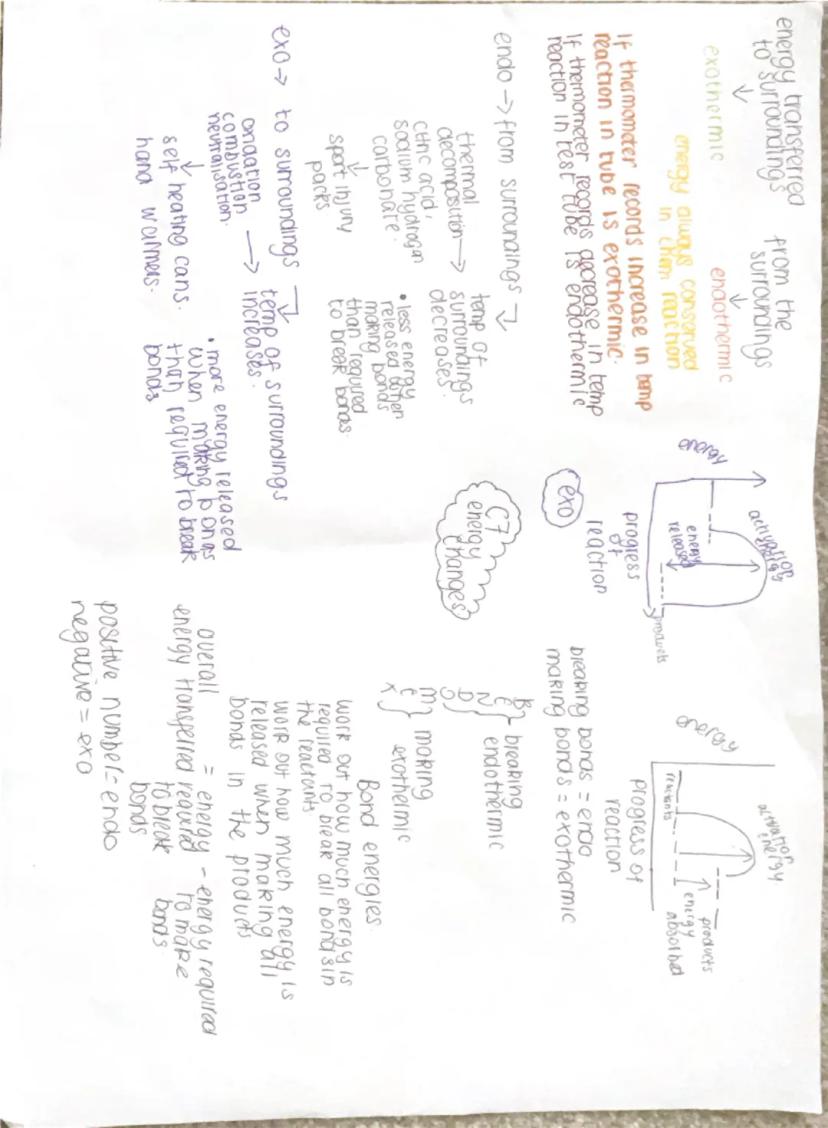 energy transferred
to surroundings
↓
exothermic
from the
surroundings
↓
endothermic
energy always conserved
in chem reaction
If thermometer records increase in temp
reaction in tube is exothermic.
If thermometer records decrease in temp
reaction in test tube is endothermic
endo → from surroundings
thermal
decomposition →
citric acid,
sodium hydrogen
carbonate.
↓
sport injury
packs
temp of
surroundings
decreases.
• less energy
released when
making bonds
than required
to break bonds.
exo → to surroundings
oxidation
combustion →
neutralisation.
↓
self heating cans.
hand warmers.
temp of surroundings
increases.
• more energy released
when making bonds
than required to break
bonds
energy
activation
energy
energy
released
products
progress
of
reaction
exo
C7
energy
changes
energy
activation
energy
reactants
products
energy
absorbed
progress of
reaction
breaking bonds = endo
making bonds = exothermic
B
E
N
D
O
} breaking
endothermic
M
E
X
} making
exothermic
Bond energies.
work out how much energy is
required to break all bonds in
the reactants
work out how much energy is
released when making all
bonds in the products
overall = energy - energy required
energy transferred required to make
to break bonds.
bonds
positive number = endo
negative = exo